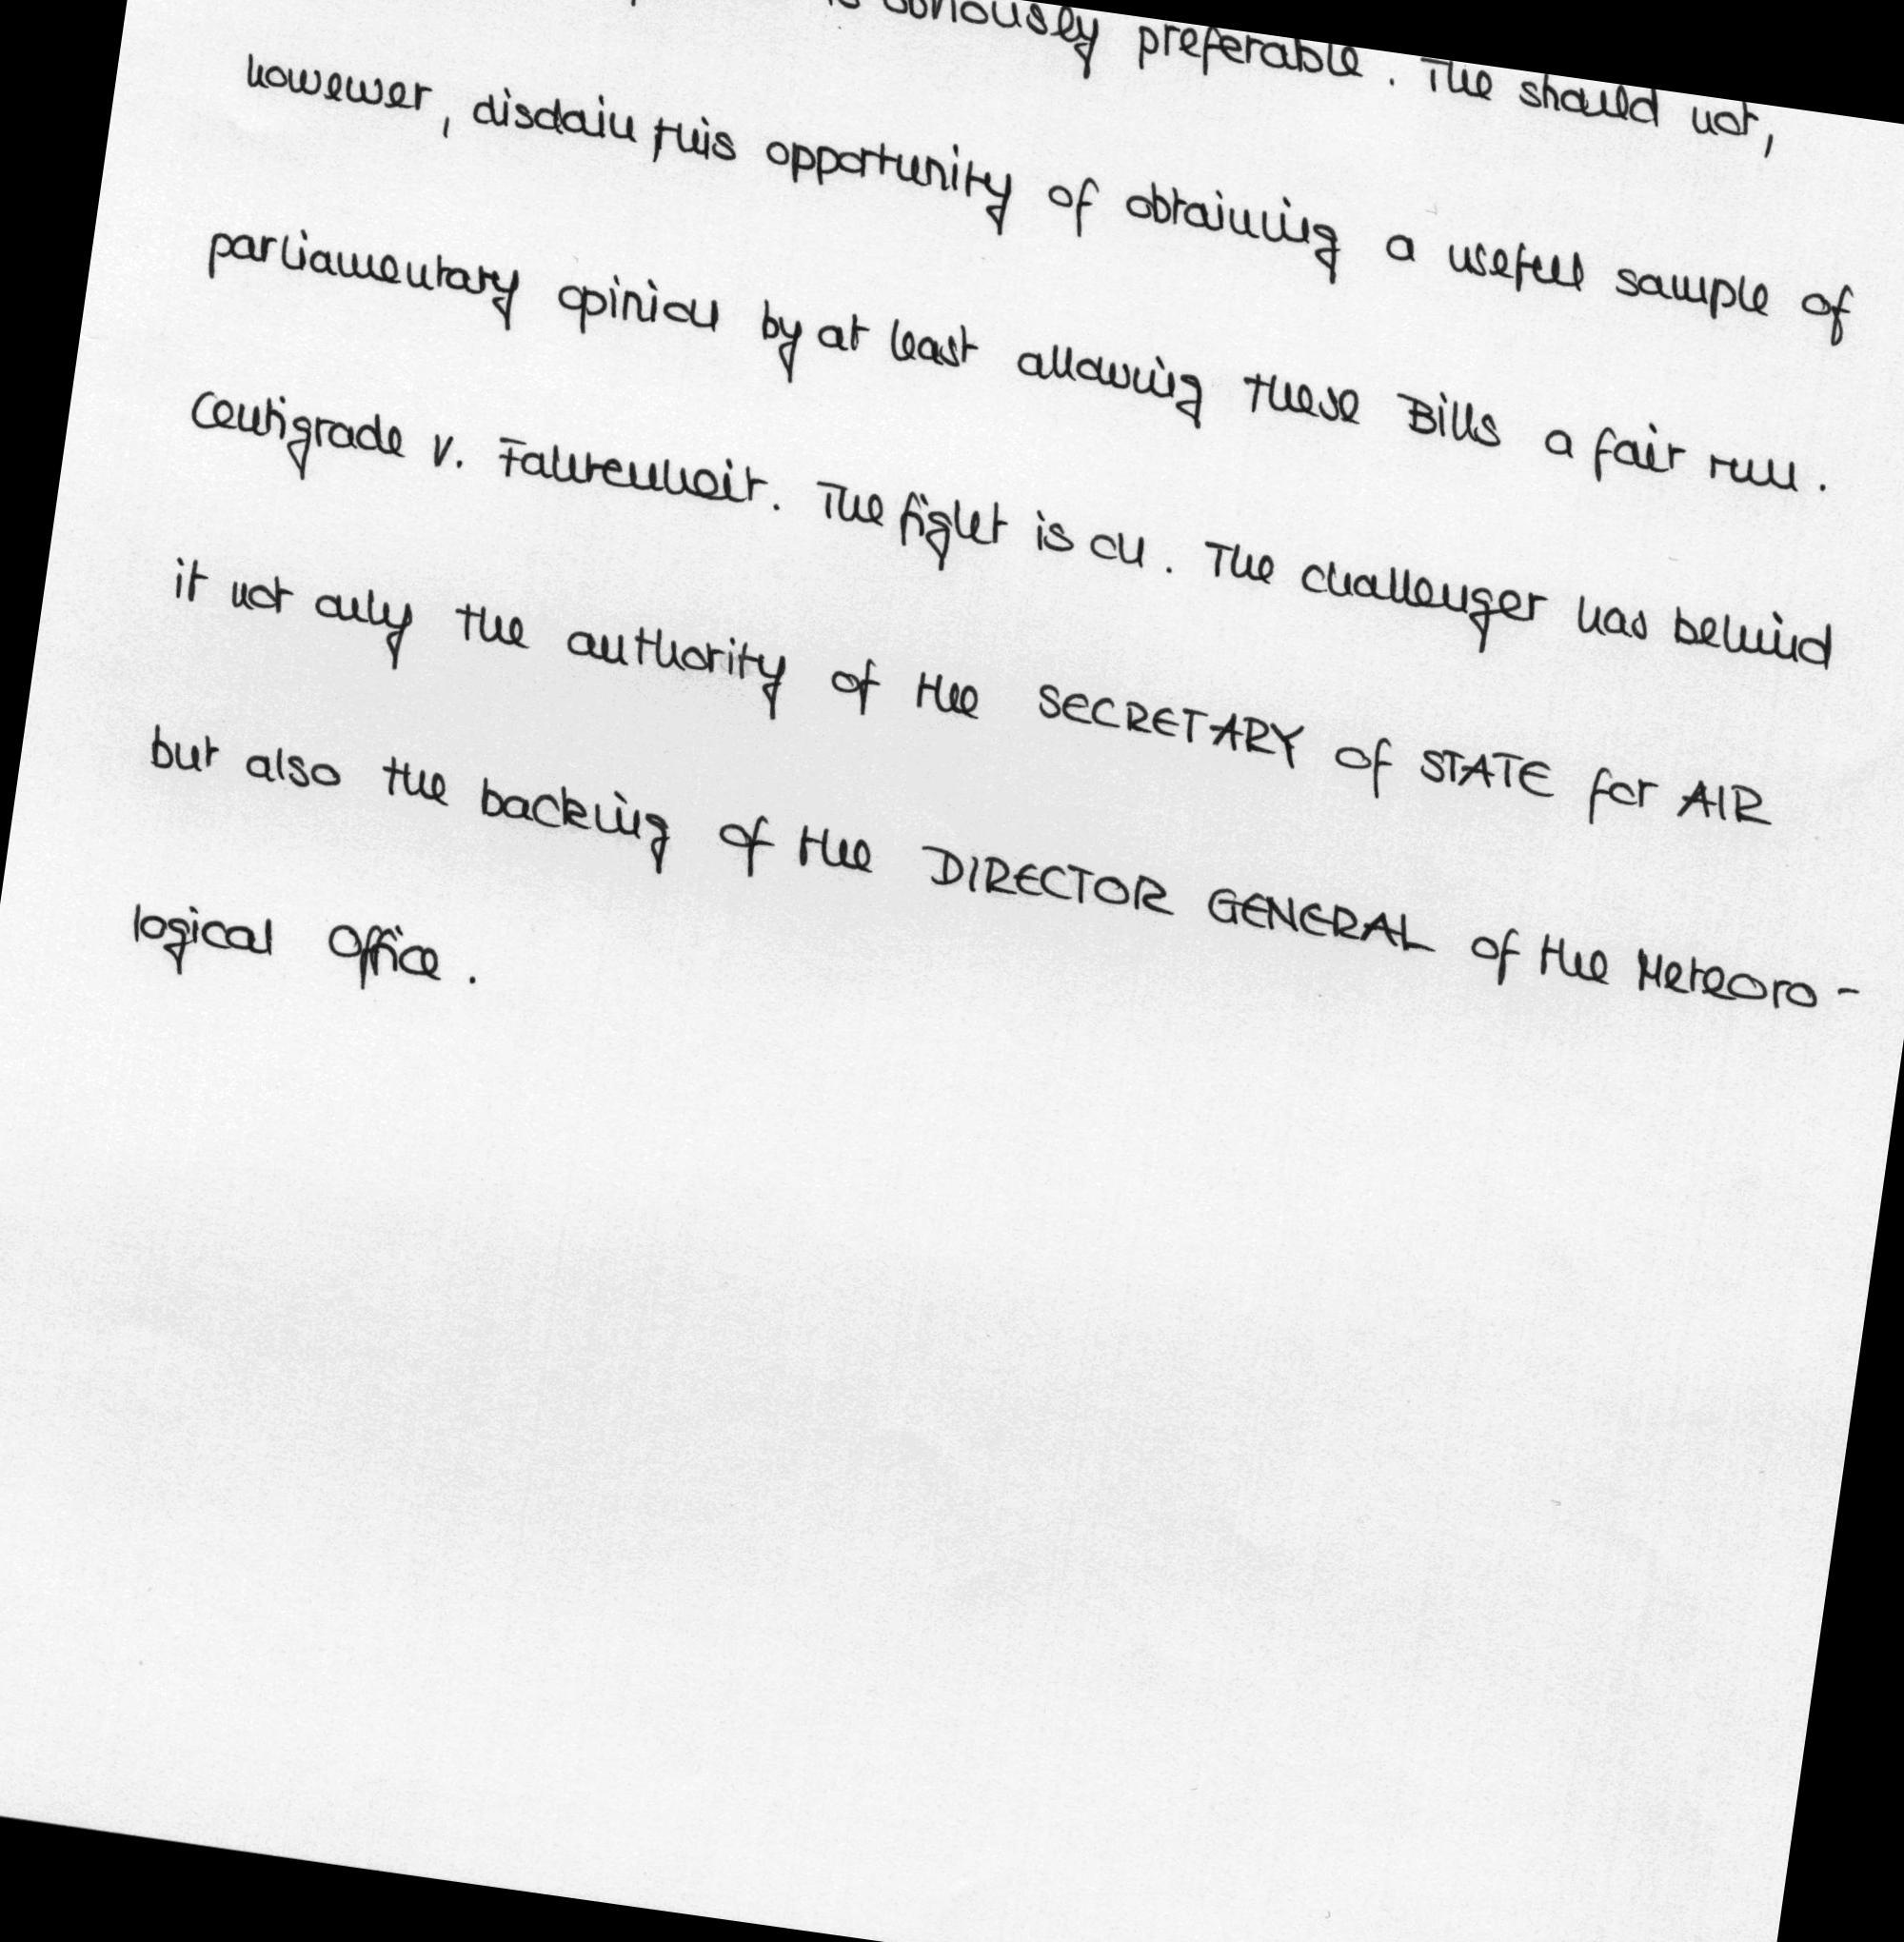 obviously preferable. The should not,
however, disdain this opportunity of obtaining a useful sample of
parliamentary opinion by at least allowing these Bills a fair run.
Centigrade v. Fahrenheit. The fight is on. The challenger has behind
it not only the authority of the SECRETARY of STATE for AIR
but also the backing of the DIRECTOR GENERAL of the Meteoro-
logical Office.